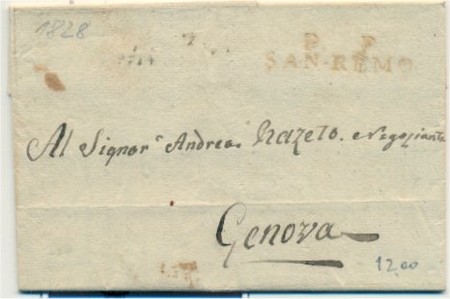 1828
P. P.
SAN-REMO
Al Signor.e Andrea. Razeto. e Negoziante
Genova
12.00